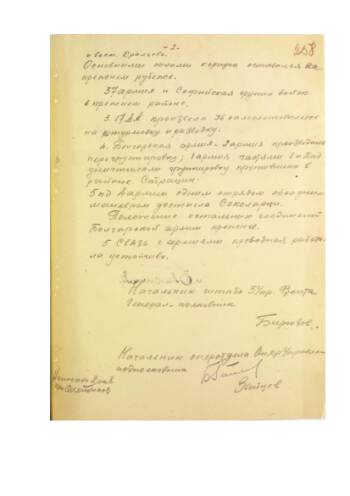 -2.-
258
и вост. Кральево.
Основными силами корпус оставался на
прежнем рубеже.
37 армия и Софийская группа войск
в прежнем районе.
3. 17 ВА произвела 36 самолетовылетов
на штурмовку и разведку.
4. Болгарская армия - 2 армия производила
перегруппировку; 1 армия частями 1 и
группировку противника в
районе Страцин.
5 пд 4 армии одним отрядом обходным
маневром достигла Соколарци.
Положение остальных соединений
Болгарской армии прежнее.
5. Связь с армиями проводная работа-
ла устойчиво.
Начальник штаба 3 Укр. Фронта
Генерал-полковник
Бирюзов.
Начальник оперотдела Опер Управления
подполковник
Зайцев